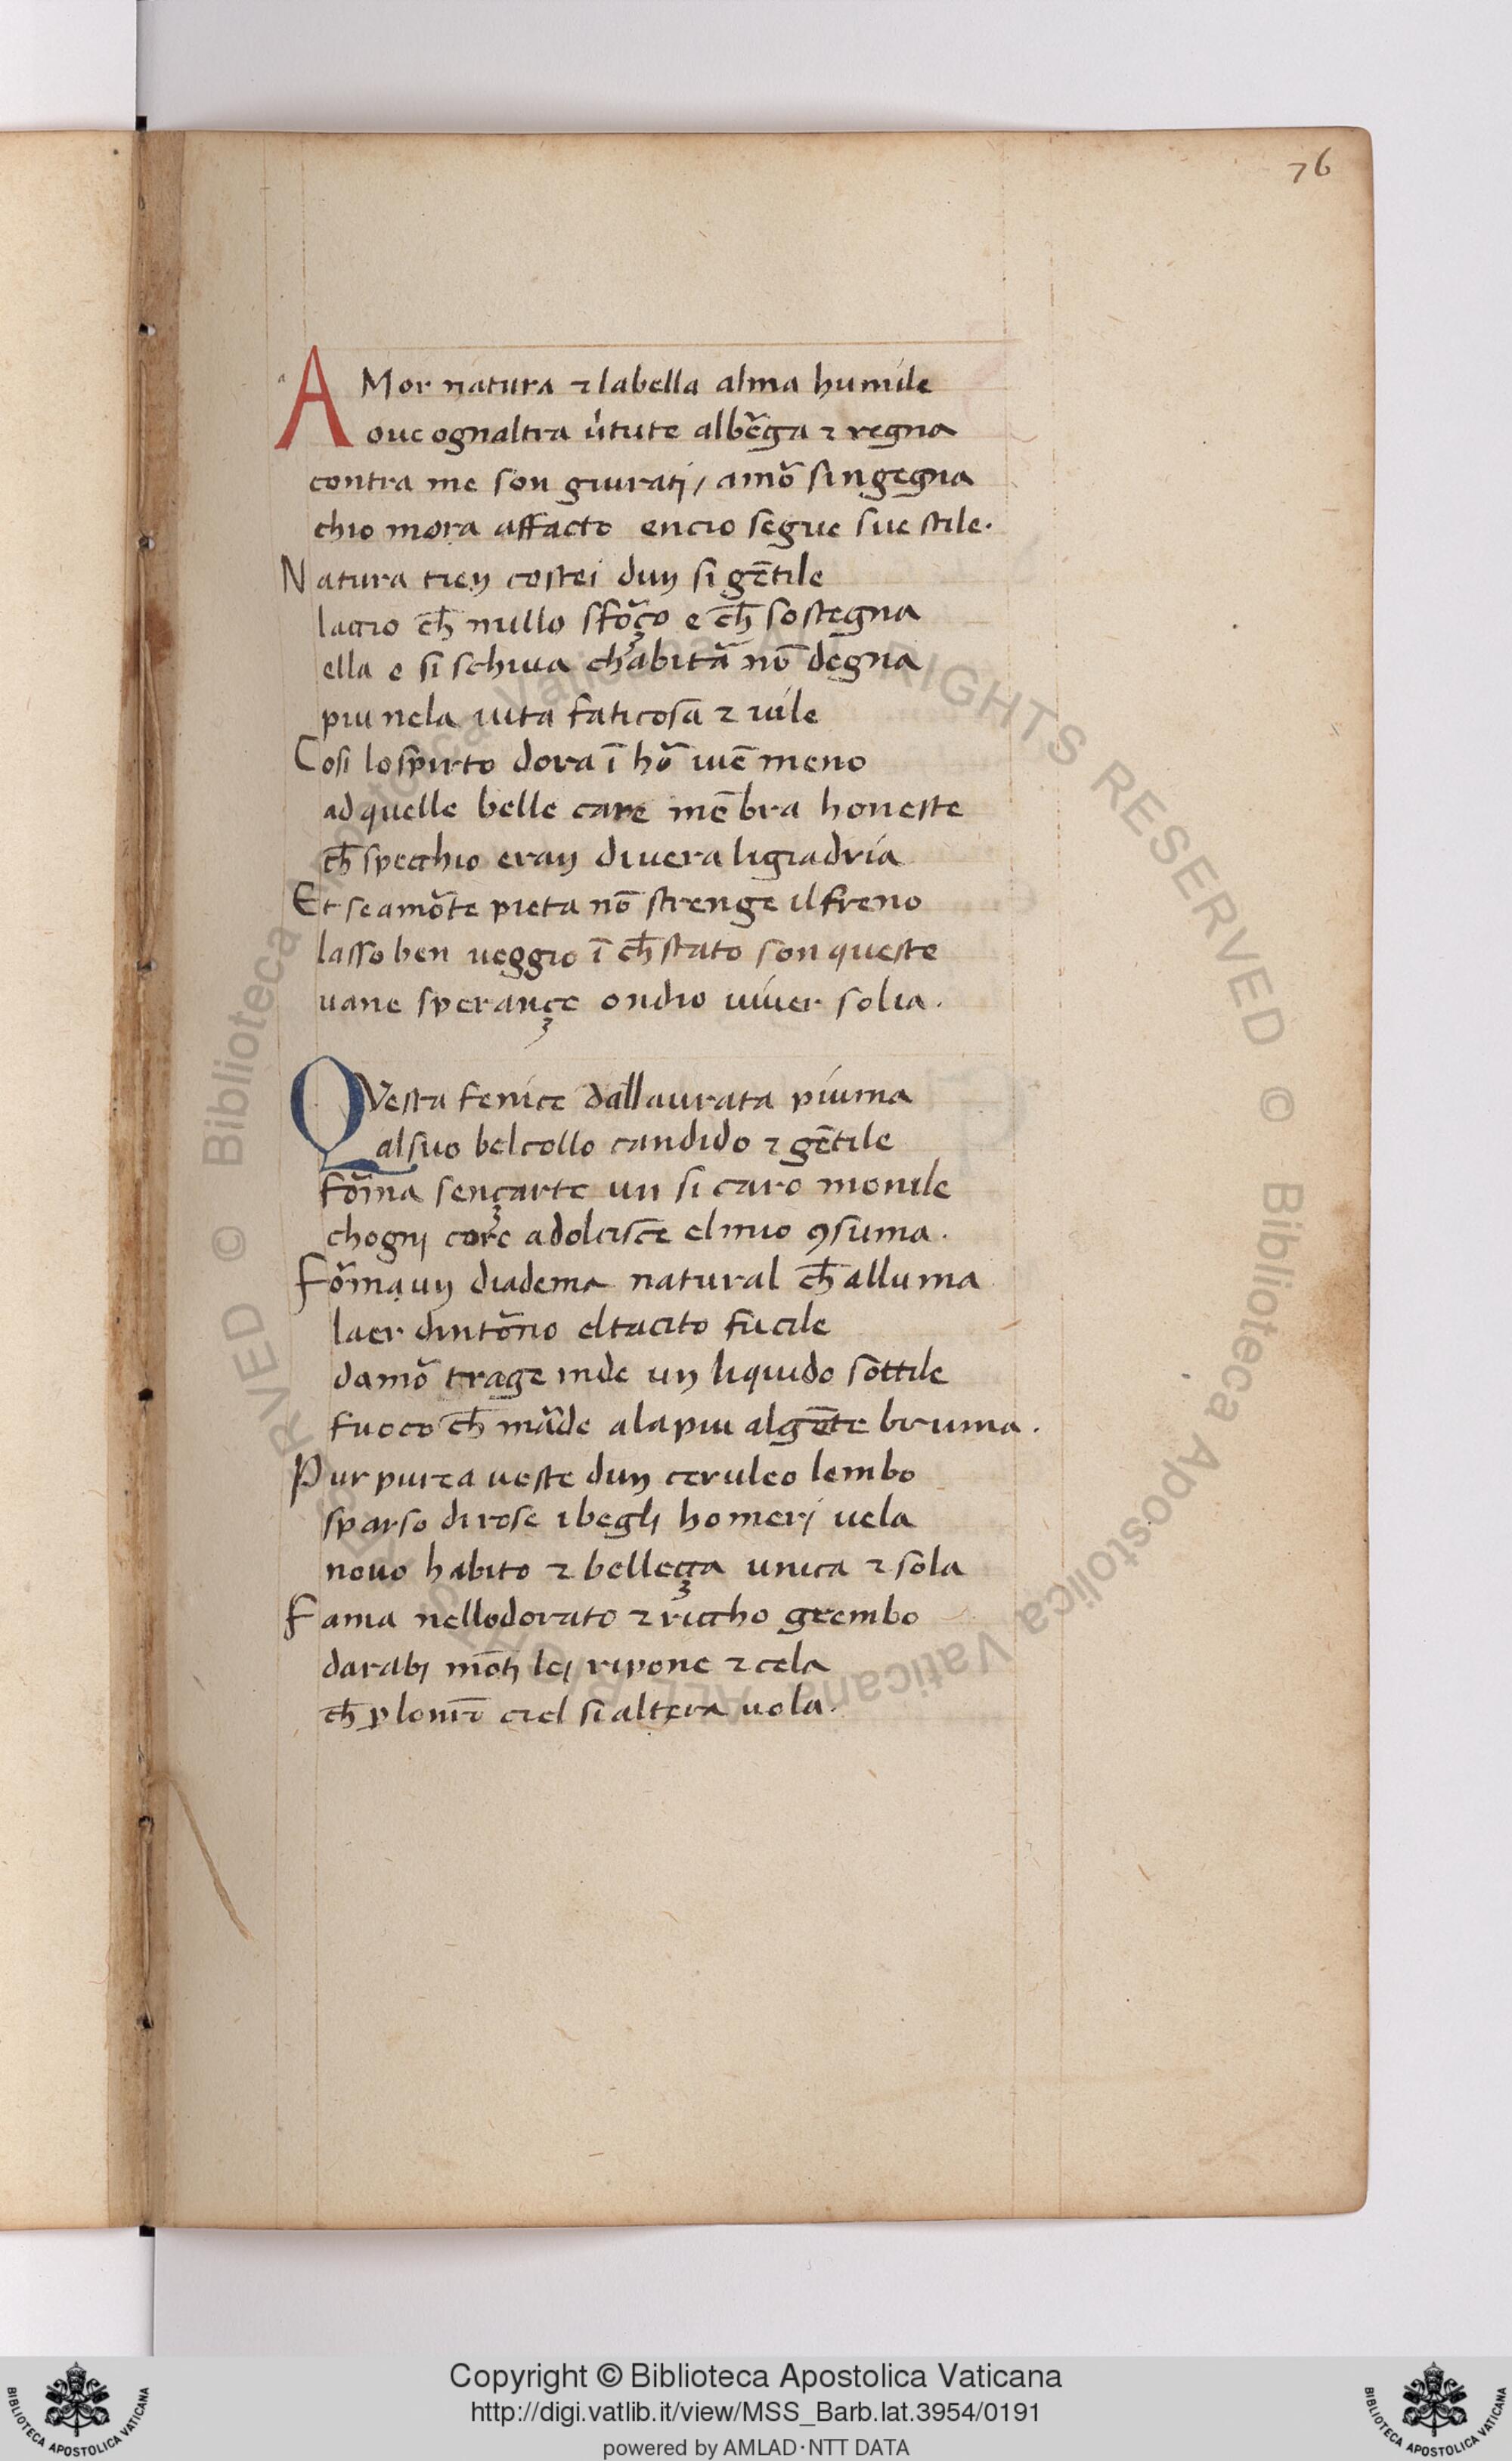 76
a
AMor natura ⁊ labella alma humile
oue ognaltra u̓tute alb̃ega ⁊ regna
contra me son giuratj / amõ singegna
chio mora affacto encio segue sue stile.
Natura tien costei dun si gẽtile
laccio ch̄ nullo sfõço e ch̄ sostegna
ella e si schiua ch'abitã nõ degna
piu nela uita faticosa ⁊ uile
Cosi lo spirto dora ĩ hõ uiẽ meno
ad quelle belle care mẽbra honeste
ch̄ specchio eran diuera ligiadria
Et se amõte pieta nõ strenge il freno
lasso ben ueggio ĩ ch̄ stato son queste
uane sperançe ondio uiuer solia.
QVesta fenice dall aurata piuma
al suo bel collo candido ⁊ gẽtile
fõma sençarte un si caro monile
chognj core adolcisce el mio ꝯsuma.
Fõma un diadema natural ch̄ alluma
laer dintõno el tacito fucile
damõ trage inde un liquido sottile
fuoco ch̄ mãde ala piu algẽte bruma.
Purpurea ueste dun ceruleo lembo
sparso di rose i beglj homerj uela
nouo habito ⁊ belleçça unica ⁊ sola
Fama nellodorato ⁊ riccho grembo
darabj mõtj lej ripone ⁊ cela
ch̄ ꝑ lo nr̃o ciel si altera uola.
Copyright © Biblioteca Apostolica Vaticana
http://digi.vatlib.it/view/MSS_Barb.lat.3954/0191
powered by AMLAD·NTT DATA
BIBLIOTECA APOSTOLICA VATICANA
BIBLIOTECA APOSTOLICA VATICANA